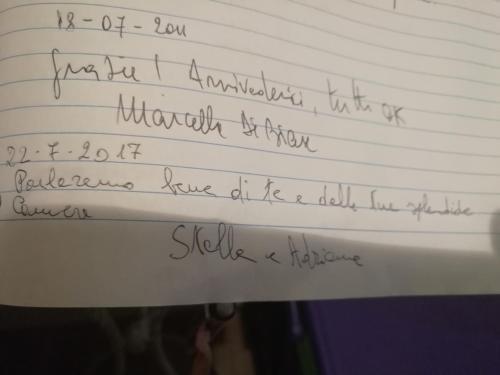 18-07-2011
Grazie! Arrivederci, tutto OK
Marcella Di
22-7-2017
Parleremo bene di te e delle tue splendide
camere
Stella e Adriana